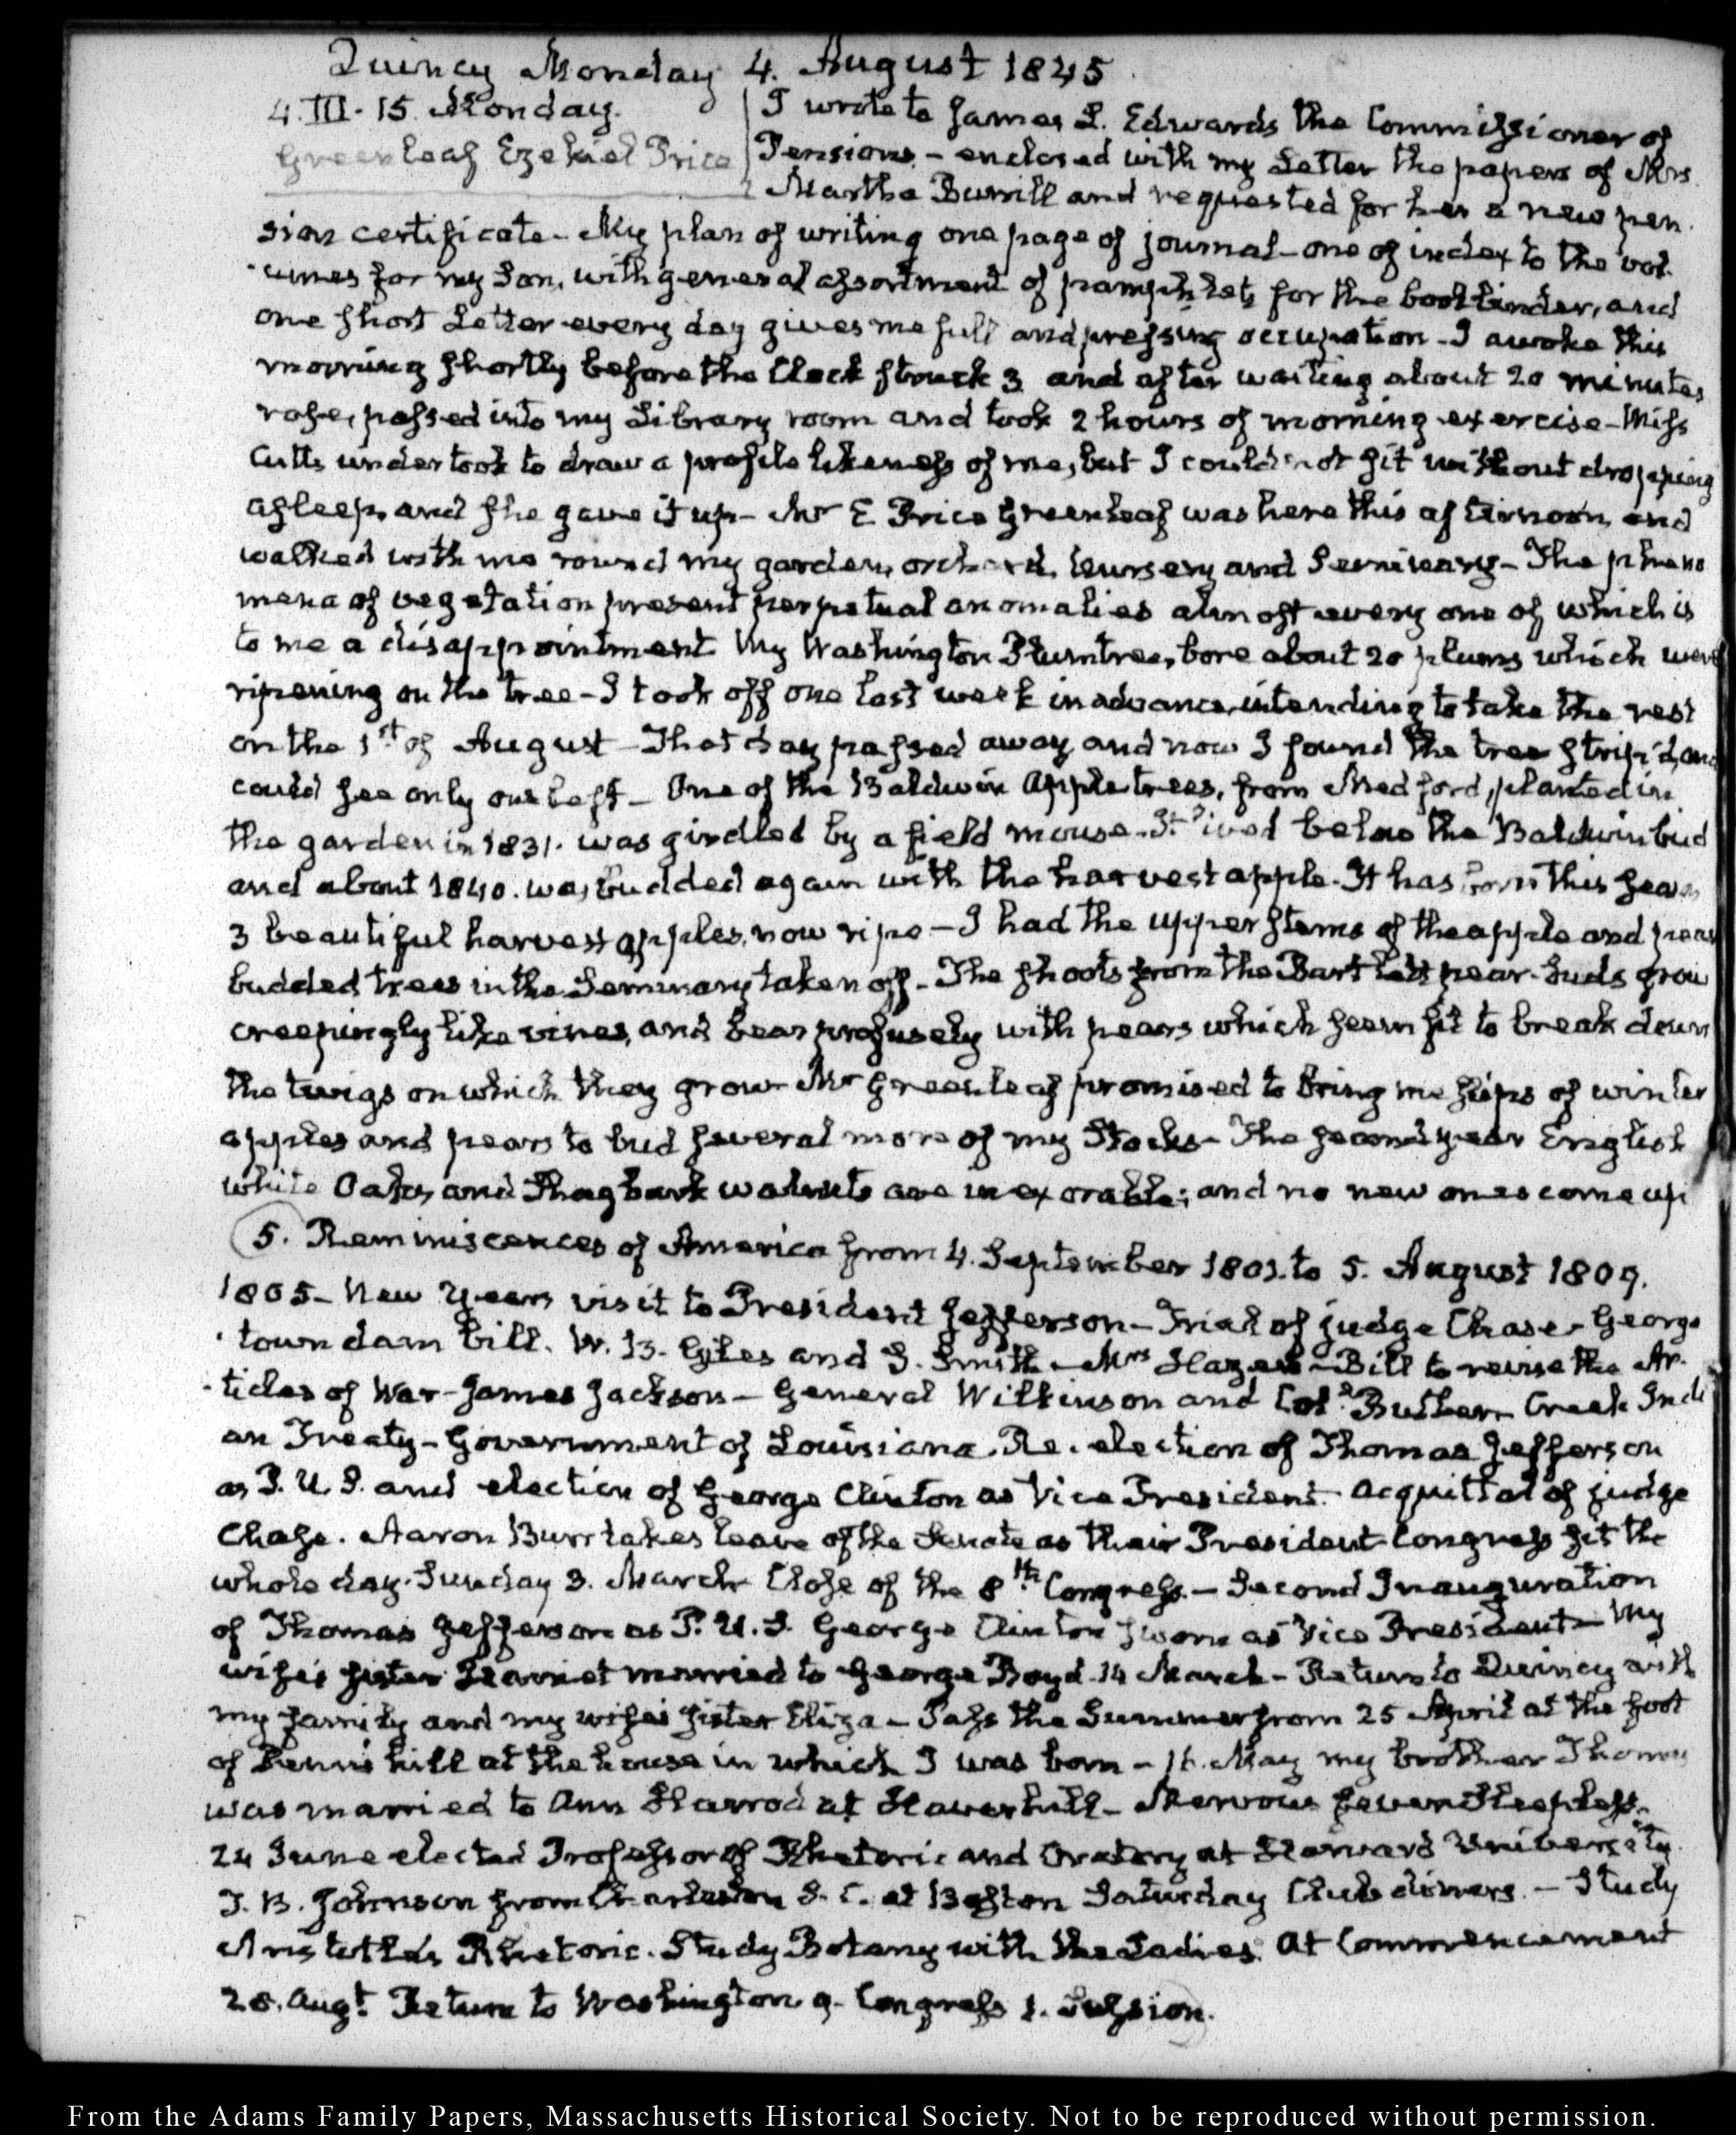 Quincy Monday 4. August 1845
4. III. 15. Monday.
Greenleaf Ezekiel Price
I wrote to James L. Edwards the Commissioner of
Pensions — enclosed with my Letter the papers of Mrs
Martha Burrill and requested for her a new pen-
sion certificate — My plan of writing one page of journal — one of index to the vol-
umes for my Son, with general assortment of pamphlets for the bookbinder, and
one short Letter every day gives me full and pressing occupation — I awoke this
morning shortly before the Clock struck 3 and after waiting about 20 minutes
rose, passed into my Library room and took 2 hours of morning exercise — Miss
Cutts undertook to draw a profile likeness of me, but I could not sit without dropping
asleep, and she gave it up — Mr E Price Greenleaf was here this afternoon, and
walked with me round my garden, orchard, nursery and Seminary — The pheno
mena of vegetation present perpetual anomalies almost every one of which is
to me a disappointment. My Washington Plumtree, bore about 20 plums which were
ripening on the tree — I took off one last week in advance, intending to take the rest
on the 1st of August — That day passed away, and now I found the tree strip'd, and
could see only one left — One of the Baldwin Apple trees, from Medford, planted in
the garden in 1831. was girdled by a field mouse. It lived below the Baldwin bud
and about 1840. was budded again with the harvest apple. It has born this year
3 beautiful harvest apples, now ripe — I had the upper stems of the apple and pear
budded trees in the Seminary taken off — The shoots from the Bartlett pear-buds grow
creepingly like vines, and bear profusely with pears which seem fit to break down
the twigs on which they grow — Mr Greenleaf promised to bring me slips of winter
apples and pears to bud several more of my Stocks — The second year English
white Oaks, and Shagbark walnuts are inexorable; and no new ones come up
5. Reminiscences of America from 4. September 1801. to 5. August 1809.
1805 — New Years visit to President Jefferson — Trial of judge Chase — George
town dam bill. W. B. Giles and S. Smith — Mrs Hazen — Bill to revise the Ar-
ticles of War — James Jackson — General Wilkinson and Col. Butler — Creek Indi
an Treaty — Government of Louisiana. Re-election of Thomas Jefferson
as P. U. S. and election of George Clinton as Vice President. Acquittal of judge
Chase. Aaron Burr takes leave of the Senate as their President — Congress sit the
whole day. Sunday 3. March Close of the 8th Congress. — Second Inauguration
of Thomas Jefferson as P. U. S. George Clinton sworn as Vice President — My
wife's sister Harriet married to George Boyd. 14 March — Return to Quincy with
my family and my wife's sister Eliza — Pass the Summer from 25 April at the foot
of Penn's hill at the house in which I was born — 16. May my brother Thomas
was married to Ann Harrod at Haverhill —
24 June elected Professor of Rhetoric and Oratory at Harvard University.
J. B. Johnson from Charleston S. C. at Boston Saturday Club dinners. — Study
Aristotle's Rhetoric. Study Botany with the Ladies. At Commencement
28. Augt. Return to Washington 9. Congress 1. Session.
From the Adams Family Papers, Massachusetts Historical Society. Not to be reproduced without permission.